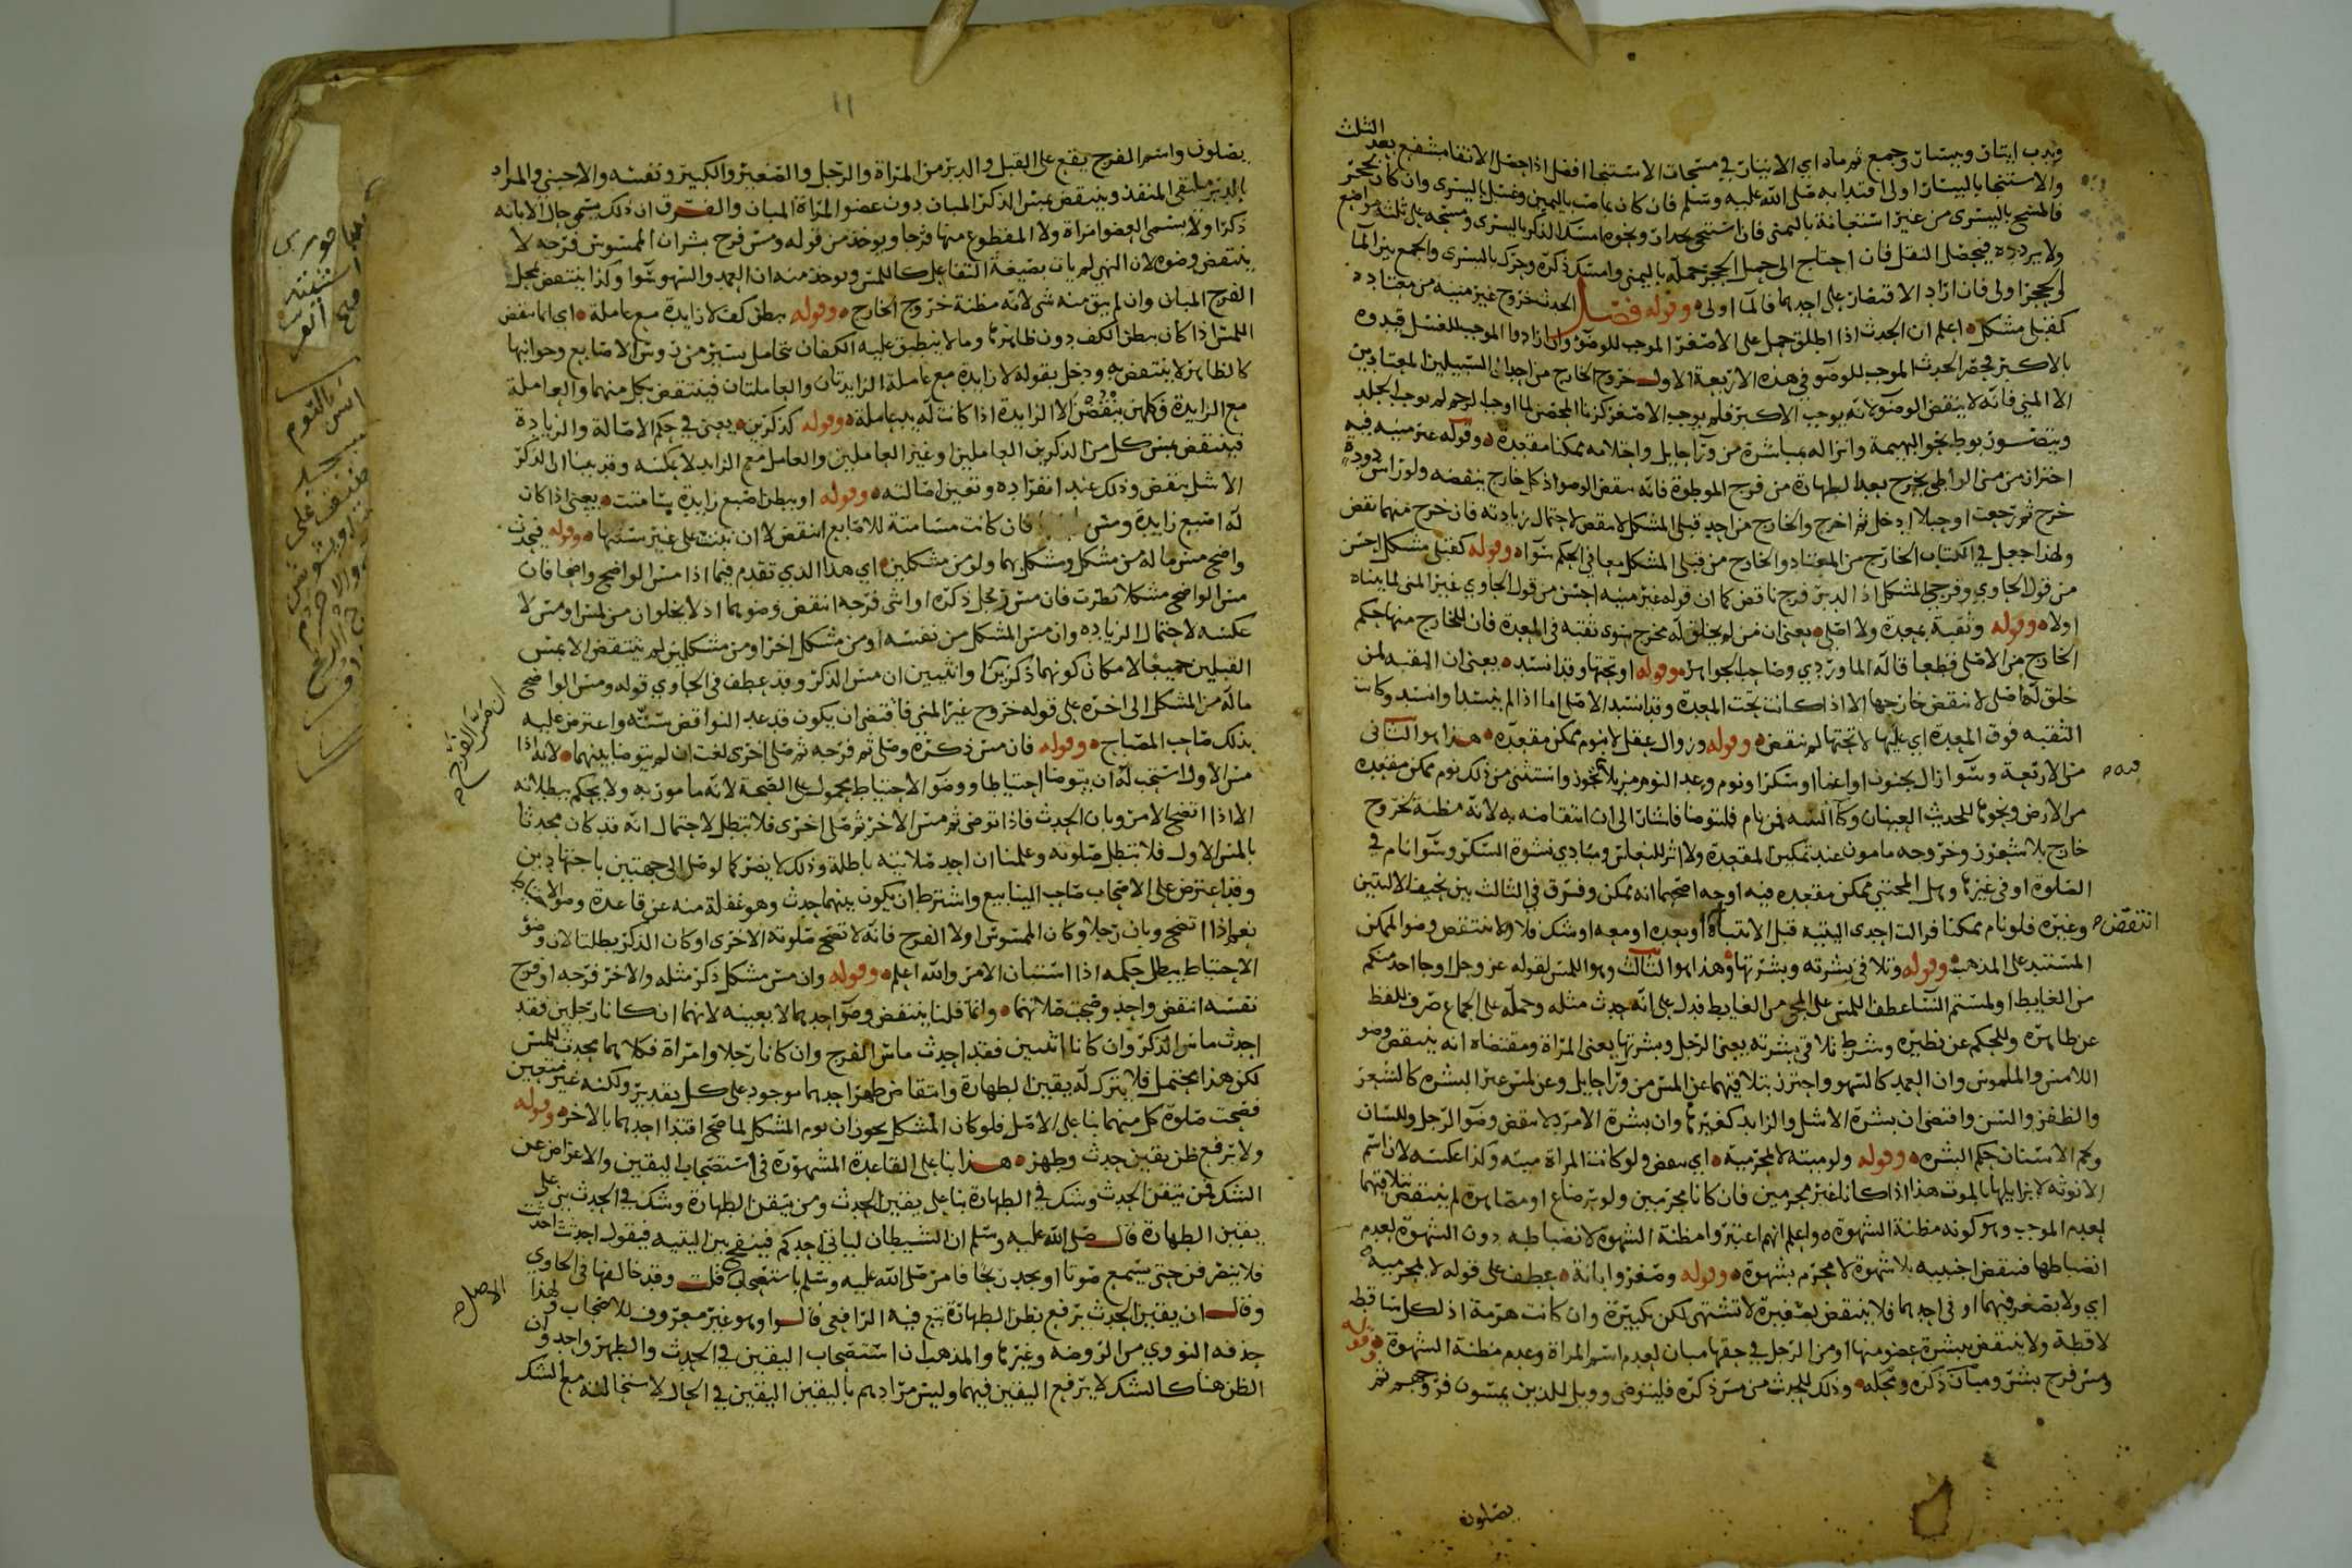 وندب ايتان وبيسار وجمع ثم ماء اي الايتار في مسحات الاستنجا افضل اذا حصل الانقا بشفع بعد الثلث
والاستنجا باليسار اولى اقتدا به صلى الله عليه وسلم فان كان بما صب باليمين وغسل باليسرى وان كان بحجر
فالمسح باليسرى من غير استعانة باليمنى فان استنجى بجدار ونحوه امسك الذكر باليسرى ومسحه على ثلثة مواضع
ولا يردده فيحصل النقل فان احتاج الى حمل الحجر حمله باليمنى وامسك ذكره وحرك باليسرى والجمع بين الما
والحجر اولى فان اراد الاقتصار على احدهما فالما اولى وقوله فصل الحدث خروج غير منيه من معتاده
كقبلي مشكل اعلم ان الحدث اذا اطلق حمل على الاصغر الموجب للوضو وان ارادوا الموجب للغسل قيدوه
بالاكبر فحصر الحدث الموجب للوضو في هذه الاربعة الاول خروج الخارج من احدى السبيلين المعتادين
الا المني فانه لا ينقض الوضو لانه يوجب الاكبر فلم يوجب الاصغر كزنا المحصن لما اوجب الرجم لم يوجب الجلد
ويتصور بوطئ نحو البهيمة وانزاله بمباشرة من ورا حايل واحتلامه ممكنا مقعدة وقوله غير منيه فيه
احتراز من مني الواطي يخرج بعد الطهارة من فرج الموطوة فانه ينقض الوضو اذ كل خارج ينقضه ولو راس دودة
خرج ثم رجعت او حبلا ادخل ثم اخرج والخارج من احد قبلي المشكل لا ينقض لاحتمال زيادته فان خرج منهما نقض
ولهذا جعل في الكتاب الخارج من المعتاد والخارج من قبلي المشكل معا في الحكم سوا وقوله كقبلي مشكل احسن
من قول الحاوي وفرجي المشكل اذ الدبر فرج ناقض كما ان قوله غير منيه احسن من قول الحاوي غير المني لما بيناه
اولا وقوله وثقبة بمعدة ولا اصلي يعني ان من لم يخلق له مخرج سوى ثقبة في المعدة فان للخارج منها حكم
الخارج من الاصلي قطعا قاله الماوردي وصاحب الجواهر وقوله او تحتها وقد انسد يعني ان الثقبة لمن
خلق له اصلي لا ينقض خارجها الا اذا كانت تحت المعدة وقد انسد الاصلي اما اذا لم ينسد او انسد وكانت
الثقبه فوق المعدة اي عليها لا تحتها لم ينقض وقوله وزوال عقل لا بنوم ممكن مقعدة هذا هو الثاني
من الاربعة وسوا زال بجنون او اغما او سكر او نوم وعد النوم مزيلا تجوز واستثني من ذلك نوم ممكن مقعده
من الارض ونحوها للحديث العينان وكا السه فمن نام فليتوضا فاشار الى ان انتقاضه به لانه مظنة لخروج
خارج بلا شعور وخروجه مامون عند تمكين المقعدة ولا اثر للنعاس ومبادي نشوة السكر وسوا نام في
الصلوة او في غيرها وهل المحتبي ممكن مقعده فيه اوجه اصحها انه ممكن وفرق في الثالث بين نحيف الاليتين
وغيره فلو نام ممكنا فزالت احدى اليتيه قبل الانتباه انتقض او بعده او معه او شك فلا ولا ينتقض وضو الممكن
المستند على المذهب وقوله وتلاقي بشرته وبشرتها وهذا هو الثالث وهو اللمس لقوله عز وجل او جا احد منكم
من الغايط او لمستم النسا عطف اللمس على المجي من الغايط فدل على انه حدث مثله وحمله على الجماع صرف للفظ
عن ظاهره وللحكم عن نظيره وشرط تلاقي بشرته يعني الرجل وبشرتها يعني المراة ومقتضاه انه ينتقض وضو
اللامس والملموس وان العمد كالسهو واحترز بتلاقيهما عن المس من ورا حايل وعن لمس غير البشره كالشعر
والظفر والسن واقتضى ان بشرة الاشل والزايد كغيرها وان بشرة الامرد لا ينقض وضو الرجل وللسان
ولحم الاسنان حكم البشره وقوله ولو ميتة لا بمحرمية اي ينقض ولو كانت المراة ميته وكذا عكسه لان اسم
الانوثه لا يزايلها بالموت هذا اذا كانا غير محرمين فان كانا محرمين ولو برضاع او مصاهرة لم ينتقض بتلاقيهما
لعدم الموجب وهو كونه مظنة الشهوة واعلم انهم اعتبروا مظنة الشهوة لانضباطه دون الشهوة لعدم
انضباطها فنقض اجنبيه بلا شهوة لا محرم بشهوة وقوله وصغر وابانة عطف على قوله لا بمحرمية
اي ولا بصغر فيهما او في احدهما فلا ينتقض بصغيرة لا تشتهى لكن بكبيرة وان كانت هرمة اذ لكل ساقطة
لاقطة ولا ينتقض ببشرة عضو منها او من الرجل في حقها مبان لعدم اسم المراة وعدم مظنة الشهوة وقوله
ومس فرج بشر ومبان ذكره ومحله وذلك للحدث من مس ذكره فليتوضى وويل للذين يمسون فروجهم ثم
يصلون
١١
يصلون واسم الفرج يقع على القبل والدبر من المراة والرجل والصغير والكبير ونفسه والاجنبي والمراد
بالدبر ملتقى المنفذ وينتقض بمس الذكر المبان دون عضو المراة المبان والفرق ان ذلك يسمى حال الابانه
ذكرا ولا يسمى العضو امراة ولا المقطوع منها فرجا ويوخذ من قوله ومس فرج بشر ان الممسوس فرجه لا
ينتقض وضوه لان النهي لم يات بصيغة التفاعل كاللمس ويوخذ منه ان العمد والسهو سوا وكذا ينتقض بمحل
الفرج المبان وان لم يبق منه شي لانه مظنة خروج الخارج وقوله ببطن كف لا زايدة مع عاملة اي انما ينقض
اللمس اذا كان ببطن الكف دون ظاهرها وما لا ينطبق عليه الكفان بتحامل يسير من روس الاصابع وجوانبها
كالظاهر لا ينتقض به ودخل بقوله لا زايدة مع عاملة الزايدتان والعاملتان فينتقض بكل منهما والعاملة
مع الزايدة فكلهن ينقضن الا الزايدة اذا كانت له يد عاملة وقوله كذكرين يعني في حكم الاصالة والزيادة
فينتقض بمس كل من الذكرين العاملين وغير العاملين والعامل مع الزايد لا عكسه وقد بينا ان الذكر
الاشل ينقض وذلك عند انفراده وتعين اصالته وقوله او ببطن اصبع زايدة سامتت يعني اذا كان
له اصبع زايدة ومس فان كانت مسامتة للاصابع انتقض لا ان نبتت على غير سمتها وقوله فيحدث
واضح مس ما له من مشكل ومشكل بهما ولو من مشكلين اي هذا الذي تقدم فيما اذا مس الواضح واضحا فان
مس الواضح مشكلا نظرت فان مس رجل ذكره او انثى فرجه انتقض وضوهما اذ لا يخلوان من لمس او مس لا
عكسه لاحتمال الزياده وان مس المشكل من نفسه او من مشكل اخر او من مشكلين لم ينتقض الا بمس
القبلين جميعا لامكان كونهما ذكرين او انثيين ان مس الذكر وقد عطف في الحاوي قوله ومس الواضح
ما له من المشكل الى اخره على قوله خروج غير المني فاقتضى ان يكون قد عد النواقض ستة واعترض عليه
بذلك صاحب المصباح وقوله فان مس ذكره وصلى ثم فرجه ثم صلى اخرى لغت ان لم يتوضا بينهما لانه اذا
مس الاول استحب له ان يتوضا احتياطا ووضو الاحتياط محمول على الصحة لانه مامور به ولا يحكم ببطلانه
الا اذا اتضح الامر وبان الحدث فاذا توضى ثم مس الاخر ثم صلى اخرى فلا تبطل لاحتمال انه قد كان محدثا
بالمس الاول فلا تبطل صلوته وعلمنا ان احد صلاتيه باطلة وذلك لا يضر كما لو صلى الى جهتين باجتهادين
وقد اعترض على الاصحاب صاحب الينابيع واشترط ان يكون بينهما حدث وهو غفلة منه عن قاعدة وضو الاحتياط
نعم اذا اتضح وبان رجلا وكان الممسوس اولا الفرج فانه لا تصح صلوته الاخرى او كان الذكر بطلتا لان وضو
الاحتياط يبطل حكمه اذا استبان الامر والله اعلم وقوله وان مس مشكل ذكر مثله والاخر فرجه او فرج
نفسه انتقض واحد وصحت صلاتهما وانما قلنا ينتقض وضو احدهما لا بعينه لانهما ان كانا رجلين فقد
احدث ماس الذكر وان كانا انثيين فقد احدث ماس الفرج وان كانا رجلا وامراة فكلاهما محدث للمس
لكن هذا محتمل فلا يترك له يقين الطهارة وانتقاض طهر احدهما موجود على كل تقدير ولكنه غير متعين
فصحت صلوة كل منهما بنا على الاصل فلو كان المشكل يجوز ان يوم المشكل لما صح اقتدا احدهما بالاخر وقوله
ولا يرفع ظن يقين حدث وطهر هذا بنا على القاعدة المشهورة في استصحاب اليقين والاعراض عن
الشك فمن تيقن الحدث وشك في الطهارة بنا على يقين الحدث ومن تيقن الطهارة وشك في الحدث بنى على
يقين الطهارة قال صلى الله عليه وسلم ان الشيطان لياتي احدكم فينفخ بين اليتيه فيقول احدثت احدثت
فلا ينصرفن حتى يسمع صوتا او يجد ريحا فامر صلى الله عليه وسلم باستصحاب الاصل قلت وقد خالفها في الحاوي
وقال ان يقين الحدث يرفع بظن الطهارة تبع فيه الرافعي قالوا وهو غير معروف للاصحاب ولهذا
حذفه النووي من الروضه وغيرها والمذهب ان استصحاب اليقين في الحدث والطهر واحد وان
الظن هنا كالشك لا يرفع اليقين فيهما وليس مرادهم باليقين اليقين في الحال لاستحالته مع الشك